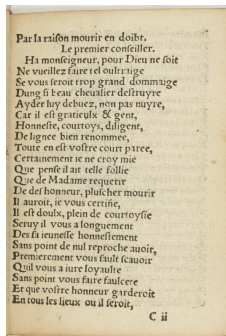 Par la raison mourir en doibt.
Le premier conseiller.
Ha monseigneur, pour Dieu ne soit
Ne vueillez faire tel oultraige
Se vous seroit trop grand dommaige
Dung si beau cheualier destruyre
Ayder luy debuez, non pas nuyre,
Car il est gratieulx & gent,
Honneste, courtoys, diligent,
De lignee bien renommee,
Toute en est vostre court paree,
Certainement ie ne croy mie
Que pense il ait telle follie
Que de Madame requerir
De des honneur, plus cher mourir
Il auroit, ie vous certifie,
Il est doulx, plein de courtoysie
Seruy il vous a longuement
Des sa ieunesse honnestement
Sans point de nul reproche auoir,
Premierement vous fault scauoir
Quil vous a iure loyaulte
Sans point vous faire faulcete
Et que vostre honneur garderoit
En tous les lieux ou il seroit,
C ii